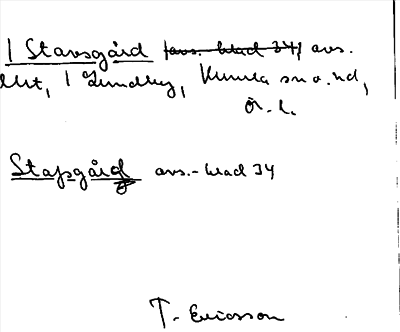 | Stavsgård avs. blad 34, avs.
| Lundby, Kumla sn o. hd,
Ö. L.
Stafsgård avs.-blad 34
T. Ericsson